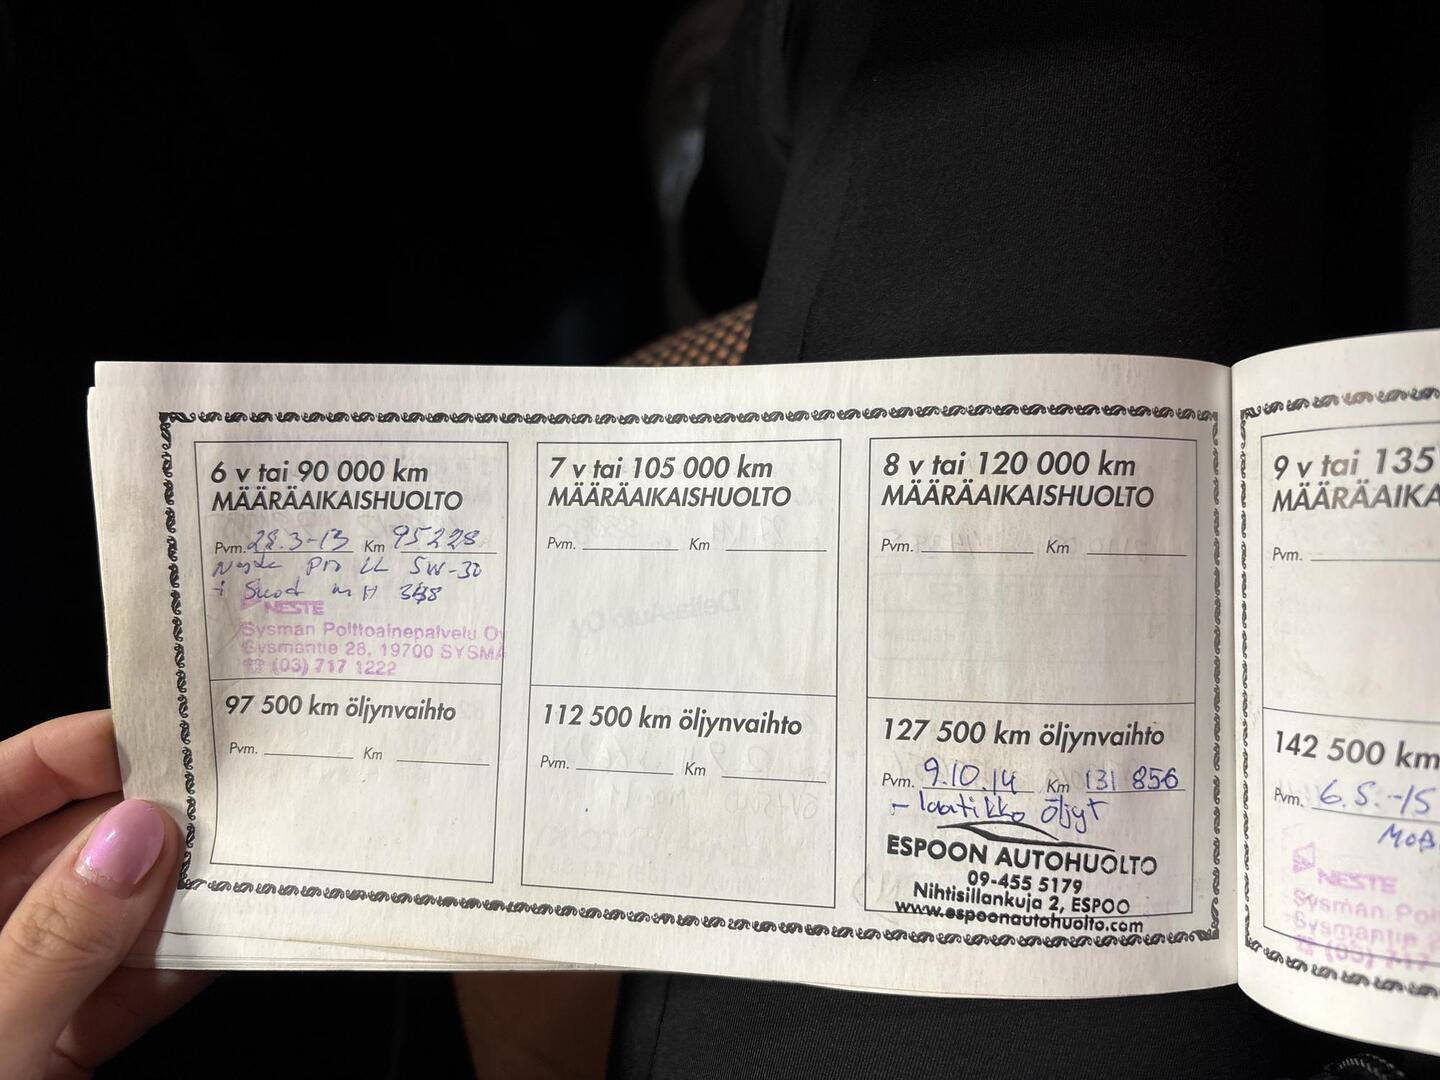 6 v tai 90 000 km
MÄÄRÄAIKAISHUOLTO
Pvm. 28.3-13 Km 95228
Neste Pro LL 5W-30
+ Suod
NESTE
Sysmän Polttoainepalvelu Oy
Sysmäntie 28, 19700 SYSMÄ
☎ (03) 717 1222
97 500 km öljynvaihto
Pvm. Km
7 v tai 105 000 km
MÄÄRÄAIKAISHUOLTO
Pvm. Km
112 500 km öljynvaihto
Pvm. Km
8 v tai 120 000 km
MÄÄRÄAIKAISHUOLTO
Pvm. Km
127 500 km öljynvaihto
Pvm. 9.10.14 Km 131 856
- laatikko öljyt
ESPOON AUTOHUOLTO
09-455 5179
Nihtisillankuja 2, ESPOO
www.espoonautohuolto.com
9 v tai 135
MÄÄRÄAIKA
Pvm.
142 500 km
Pvm. 6.5.-15
MOB
NESTE
Sysmän Pol
Sysmäntie 2
☎ (03) 717